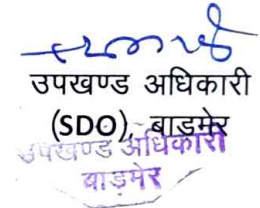 उपखण्ड अधिकारी
(SDO), बाड़मेर
उपखण्ड अधिकारी
बाड़मेर